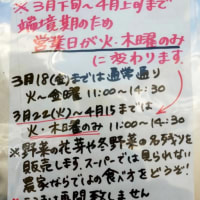 ※3月下旬~4月上旬まで
端境期のため
営業日が火・木曜のみ
に変わります。
3月18(金)までは通常通り
火~金曜 11:00~14:30
3月22(火)~4月15までは
火・木曜のみ 11:00~14:30
※野菜の花芽や冬野菜の名残りを
販売します。スーパーでは見られない
農家ならではの食べ方をどうぞ!
再開致しません